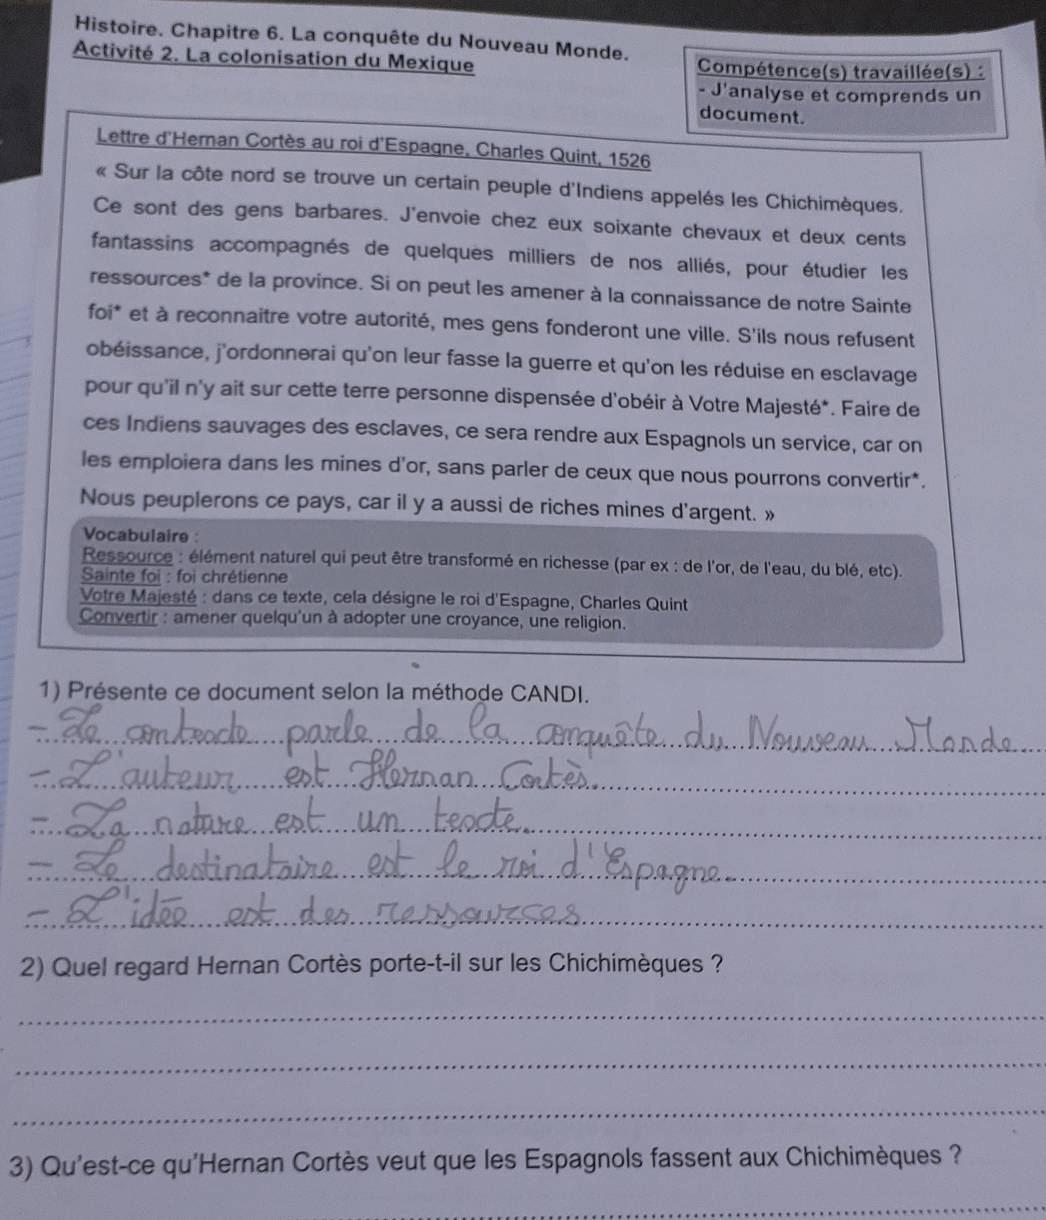 Histoire. Chapitre 6. La conquête du Nouveau Monde.
Activité 2. La colonisation du Mexique
Compétence(s) travaillée(s) :
- J'analyse et comprends un
document.
Lettre d'Hernan Cortès au roi d'Espagne, Charles Quint, 1526
« Sur la côte nord se trouve un certain peuple d'Indiens appelés les Chichimèques.
Ce sont des gens barbares. J'envoie chez eux soixante chevaux et deux cents
fantassins accompagnés de quelques milliers de nos alliés, pour étudier les
ressources* de la province. Si on peut les amener à la connaissance de notre Sainte
foi* et à reconnaitre votre autorité, mes gens fonderont une ville. S'ils nous refusent
obéissance, j'ordonnerai qu'on leur fasse la guerre et qu'on les réduise en esclavage
pour qu'il n'y ait sur cette terre personne dispensée d'obéir à Votre Majesté*. Faire de
ces Indiens sauvages des esclaves, ce sera rendre aux Espagnols un service, car on
les emploiera dans les mines d'or, sans parler de ceux que nous pourrons convertir*.
Nous peuplerons ce pays, car il y a aussi de riches mines d'argent. »
Vocabulaire :
Ressource : élément naturel qui peut être transformé en richesse (par ex : de l'or, de l'eau, du blé, etc).
Sainte foi : foi chrétienne
Votre Majesté : dans ce texte, cela désigne le roi d'Espagne, Charles Quint
Convertir : amener quelqu'un à adopter une croyance, une religion.
1) Présente ce document selon la méthode CANDI.
- Le contexte parle de la conquête du Nouveau Monde
- L'auteur est Hernan Cortès.
- La nature est un texte.
- Le destinataire est le roi d'Espagne.
- L'idée est des ressources
2) Quel regard Hernan Cortès porte-t-il sur les Chichimèques ?
3) Qu'est-ce qu'Hernan Cortès veut que les Espagnols fassent aux Chichimèques ?